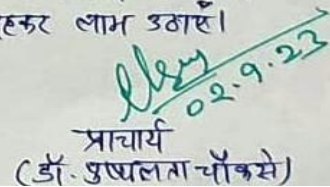 रहकर लाभ उठाएँ।
02.9.23
प्राचार्य
(डॉ. पुष्पलता चौकसे)